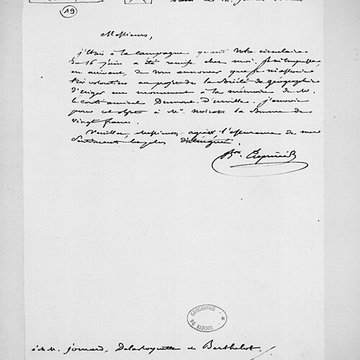 19
Messieurs,
j'étais à la campagne quand votre circulaire
du 16 juin a été remise chez moi. Je m'empresse,
en arrivant, de vous annoncer que je m'associe
très volontiers au projet de la Société de géographie
d'ériger un monument à la mémoire de M.
le contre amiral Dumont d'Urville. J'envoie
pour cet objet à Mr. Noirot la somme de
vingt francs.
Veuillez, Messieurs, agréer l'assurance de mes
sentiments les plus distingués.
Bon
à MM. Jomard, Delaroquette et Berthelot.
SOCIÉTÉ DE GÉOGRAPHIE